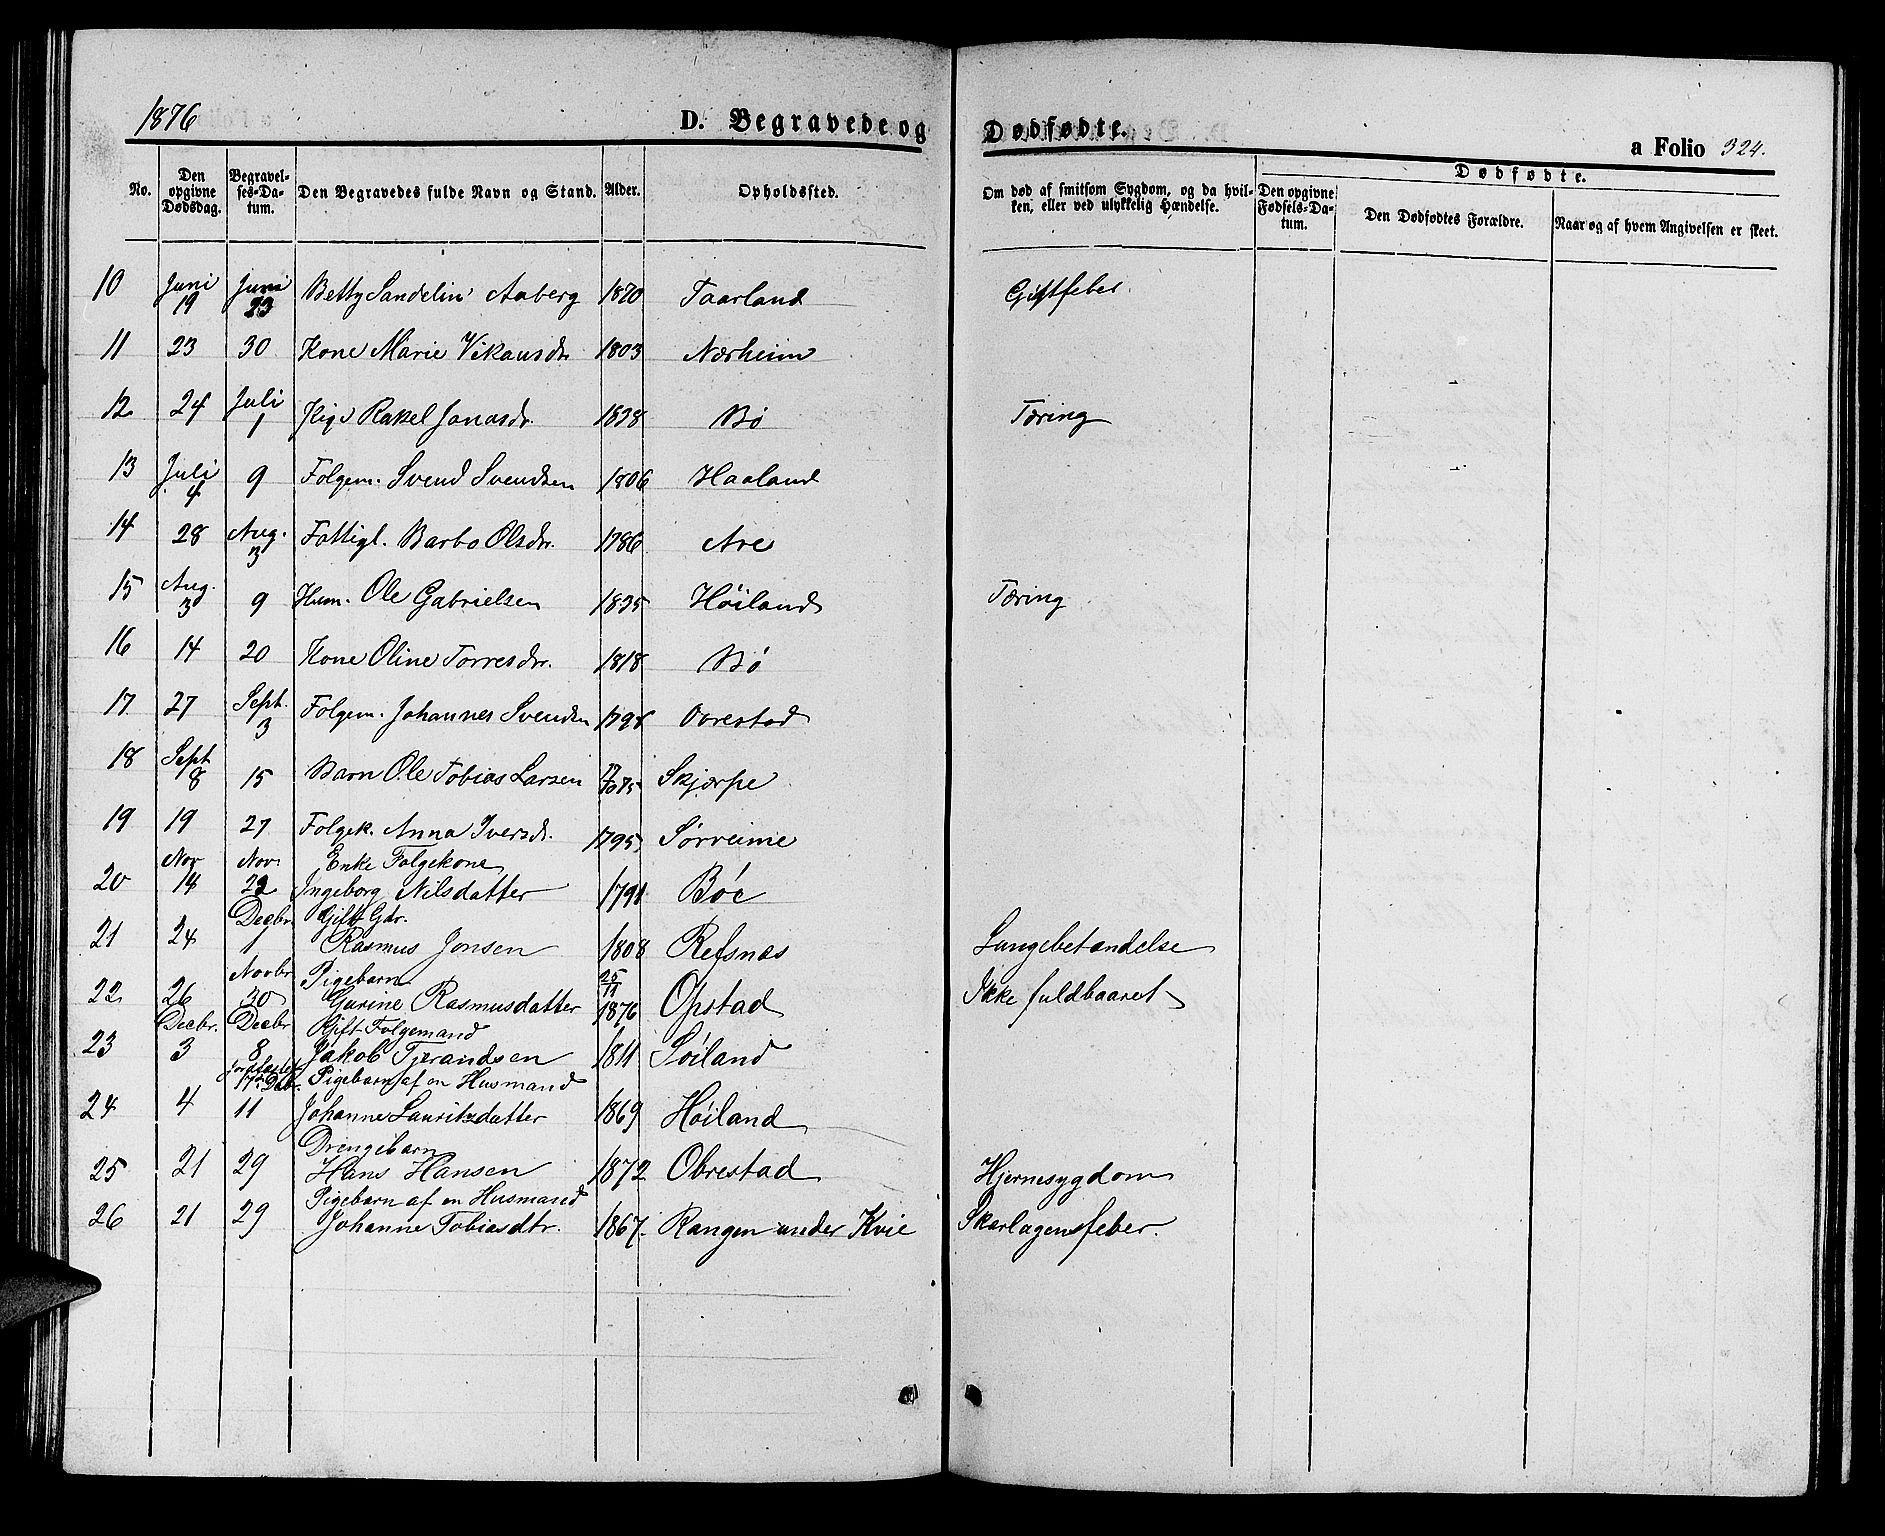 1876 D. Begravede og Dødfødte. a Folio 324.
No. Den opgivne Dødsdag. Begravelses-Datum. Den Begravedes fulde Navn og Stand. Alder. Opholdssted. Om død af smitsom Sygdom, og da hvilken, eller ved ulykkelig Hændelse. Dødfødte. Den opgivne Fødsels-Datum. Den Dødfødtes Forældre. Naar og af hvem Angivelsen er skeet.
10 Juni 19 Juni 23 Betty Sandelin Aaberg 1870 Taarland Giftfeber
11 23 30 Kone Marie 1803 Nærheim
12 24 Juli 1 Pige Rakel Jonasdr. 1838 Bø Tæring
13 Juli 4 9 Folgem. Svend Svendsen 1806 Haaland
14 28 Aug. 3 Fattigl. Barbo Olsdr. 1786 Are
15 Aug. 3 9 Husm. Ole Gabrielsen 1835 Høiland Tæring
16 14 20 Kone Oline Torresdr. 1818 Bø
17 27 Sept. 3 Folgem. Johannes Svendsn 1798 Ovrestad
18 Sept 8 15 Barn Ole Tobias Larsen 75 Skjærpe
19 19 27 Folgek. Anna Iversdr. 1795 Sørreime
Nov Nov. Enke Folgekone
20 14 22 Ingeborg Nilsdatter 1791 Bøe
Decbr. Gift Gdr.
21 24 1 Rasmus Jonsen 1808 Refsnæs Lungebetændelse
Novbr Pigebarn 25/11
22 26 30 Gurine Rasmusdatter 1876 Opstad Ikke fuldbaaret
Decbr. Decbr Gift Folgemand
23 3 8 Jakob Tjerandsen 1811 Søiland
Pigebarn af en Husmand
24 4 11 Johanne Lauritzdatter 1869 Høiland
Drengebarn
25 21 29 Hans Hansen 1872 Obrestad Hjernesygdom
Pigebarn af en Husmand
26 21 29 Johanne Tobiasdtr. 1867. Rangen under Kvie Skarlagensfeber.